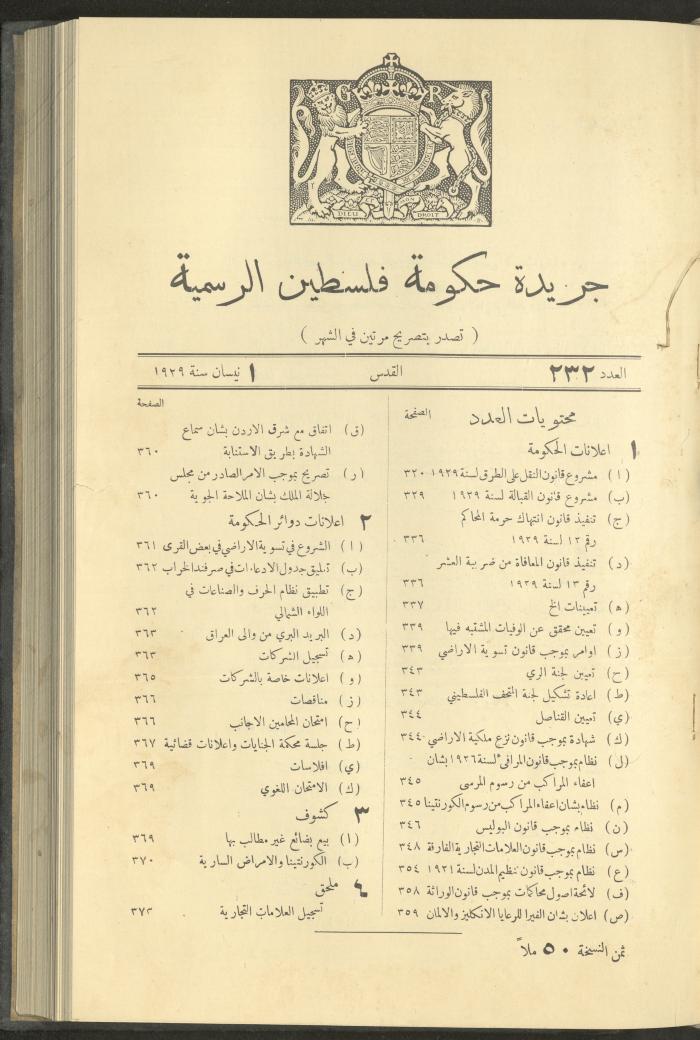 G R
DIEU ET MON DROIT
جريدة حكومة فلسطين الرسمية
( تصدر بتصريح مرتين في الشهر )
العدد ٢٣٢ القدس ١ نيسان سنة ١٩٢٩
محتويات العدد الصفحة
١ اعلانات الحكومة
(ا) مشروع قانون النقل على الطرق لسنة ١٩٢٩ ٣٢٠
(ب) مشروع قانون القبالة لسنة ١٩٢٩ ٣٢٩
(ج) تنفيذ قانون انتهاك حرمة المحاكم
رقم ١٢ لسنة ١٩٢٩ ٣٣٦
(د) تنفيذ قانون المعافاة من ضريبة العشر
رقم ١٣ لسنة ١٩٢٩ ٣٣٦
(ه) تعيينات الخ ٣٣٧
(و) تعيين محقق عن الوفيات المشتبه فيها ٣٣٩
(ز) اوامر بموجب قانون تسوية الاراضي ٣٣٩
(ح) تعيين لجنة الري ٣٤٣
(ط) اعادة تشكيل لجنة المتحف الفلسطيني ٣٤٣
(ي) تعيين القناصل ٣٤٤
(ك) شهادة بموجب قانون نزع ملكية الاراضي ٣٤٤
(ل) نظام بموجب قانون المرافئ لسنة ١٩٢٦ بشان
اعفاء المراكب من رسوم المرسى ٣٤٥
(م) نظام بشان اعفاء المراكب من رسوم الكورنتينا ٣٤٥
(ن) نظام بموجب قانون البوليس ٣٤٦
(س) نظام بموجب قانون العلامات التجارية الفارقة ٣٤٨
(ع) نظام بموجب قانون تنظيم المدن لسنة ١٩٢١ ٣٥٤
(ف) لائحة اصول محاكمات بموجب قانون الوراثة ٣٥٨
(ص) اعلان بشان الفيزا للرعايا الانكليز والالمان ٣٥٩
الصفحة
(ق) اتفاق مع شرق الاردن بشان سماع
الشهادة بطريق الاستنابة ٣٦٠
(ر) تصريح بموجب الامر الصادر من مجلس
جلالة الملك بشان الملاحة الجوية ٣٦٠
٢ اعلانات دوائر الحكومة
(ا) الشروع في تسوية الاراضي في بعض القرى ٣٦١
(ب) تعليق جدول الادعاءات في صرفند الخراب ٣٦٢
(ج) تطبيق نظام الحرف والصناعات في
اللواء الشمالي ٣٦٢
(د) البريد البري من والى العراق ٣٦٣
(ه) تسجيل الشركات ٣٦٣
(و) اعلانات خاصة بالشركات ٣٦٥
(ز) مناقصات ٣٦٦
(ح) امتحان المحامين الاجانب ٣٦٦
(ط) جلسة محكمة الجنايات واعلانات قضائية ٣٦٧
(ي) افلاسات ٣٦٩
(ك) الامتحان اللغوي ٣٦٩
٣ كشوف
(ا) بيع بضائع غير مطالب بها ٣٦٩
(ب) الكورنتينا والامراض السارية ٣٧٠
٤ ملحق
تسجيل العلامات التجارية ٣٧٣
ثمن النسخة ٥٠ ملاً